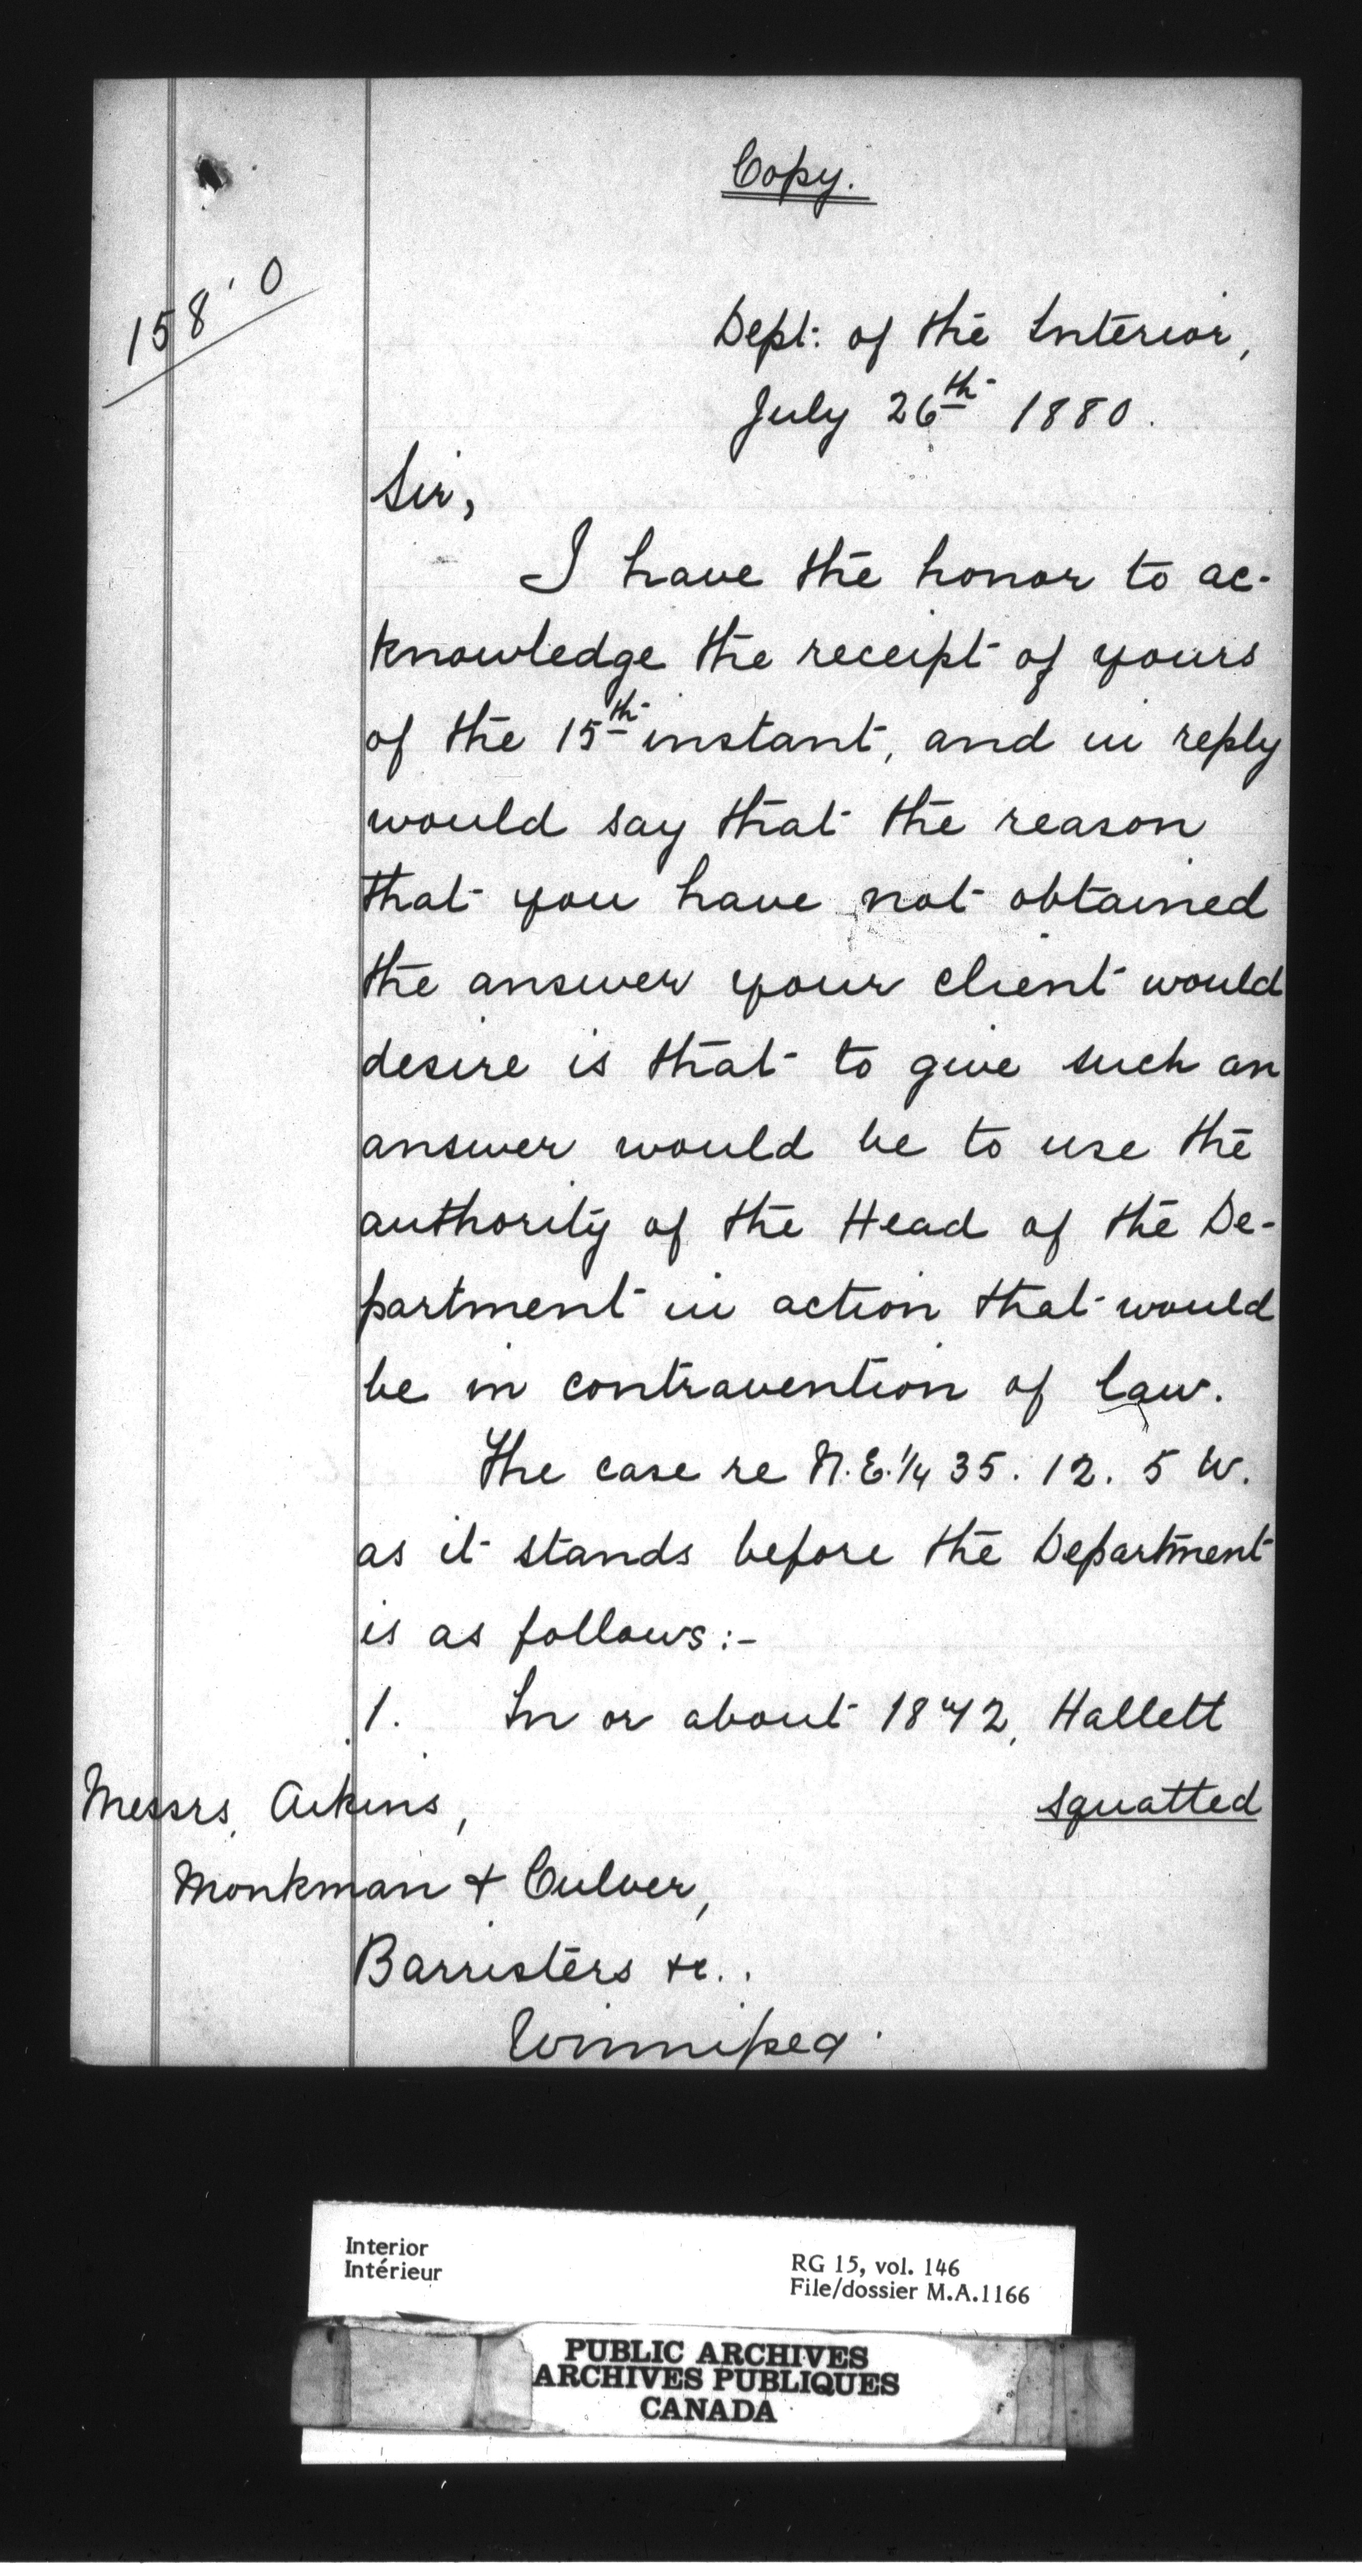 Copy.
158'0
Dept: of the Interior,
July 26th 1880.
Sir,
I have the honor to ac-
knowledge the receipt of yours
of the 15th instant, and in reply
would say that the reason
that you have not obtained
the answer your client would
desire is that to give such an
answer would be to use the
authority of the Head of the De-
partment in action that would
be in contravention of law.
The case re N.E.¼ 35. 12. 5 W.
as it stands before the Department
is as follows:-
1. In or about 1872, Hallett
squatted
Messrs, Aikins,
Monkman & Culver,
Barristers &c..
Winnipeg.
Interior
Intérieur
RG 15, vol. 146
File/dossier M.A.1166
PUBLIC ARCHIVES
ARCHIVES PUBLIQUES
CANADA